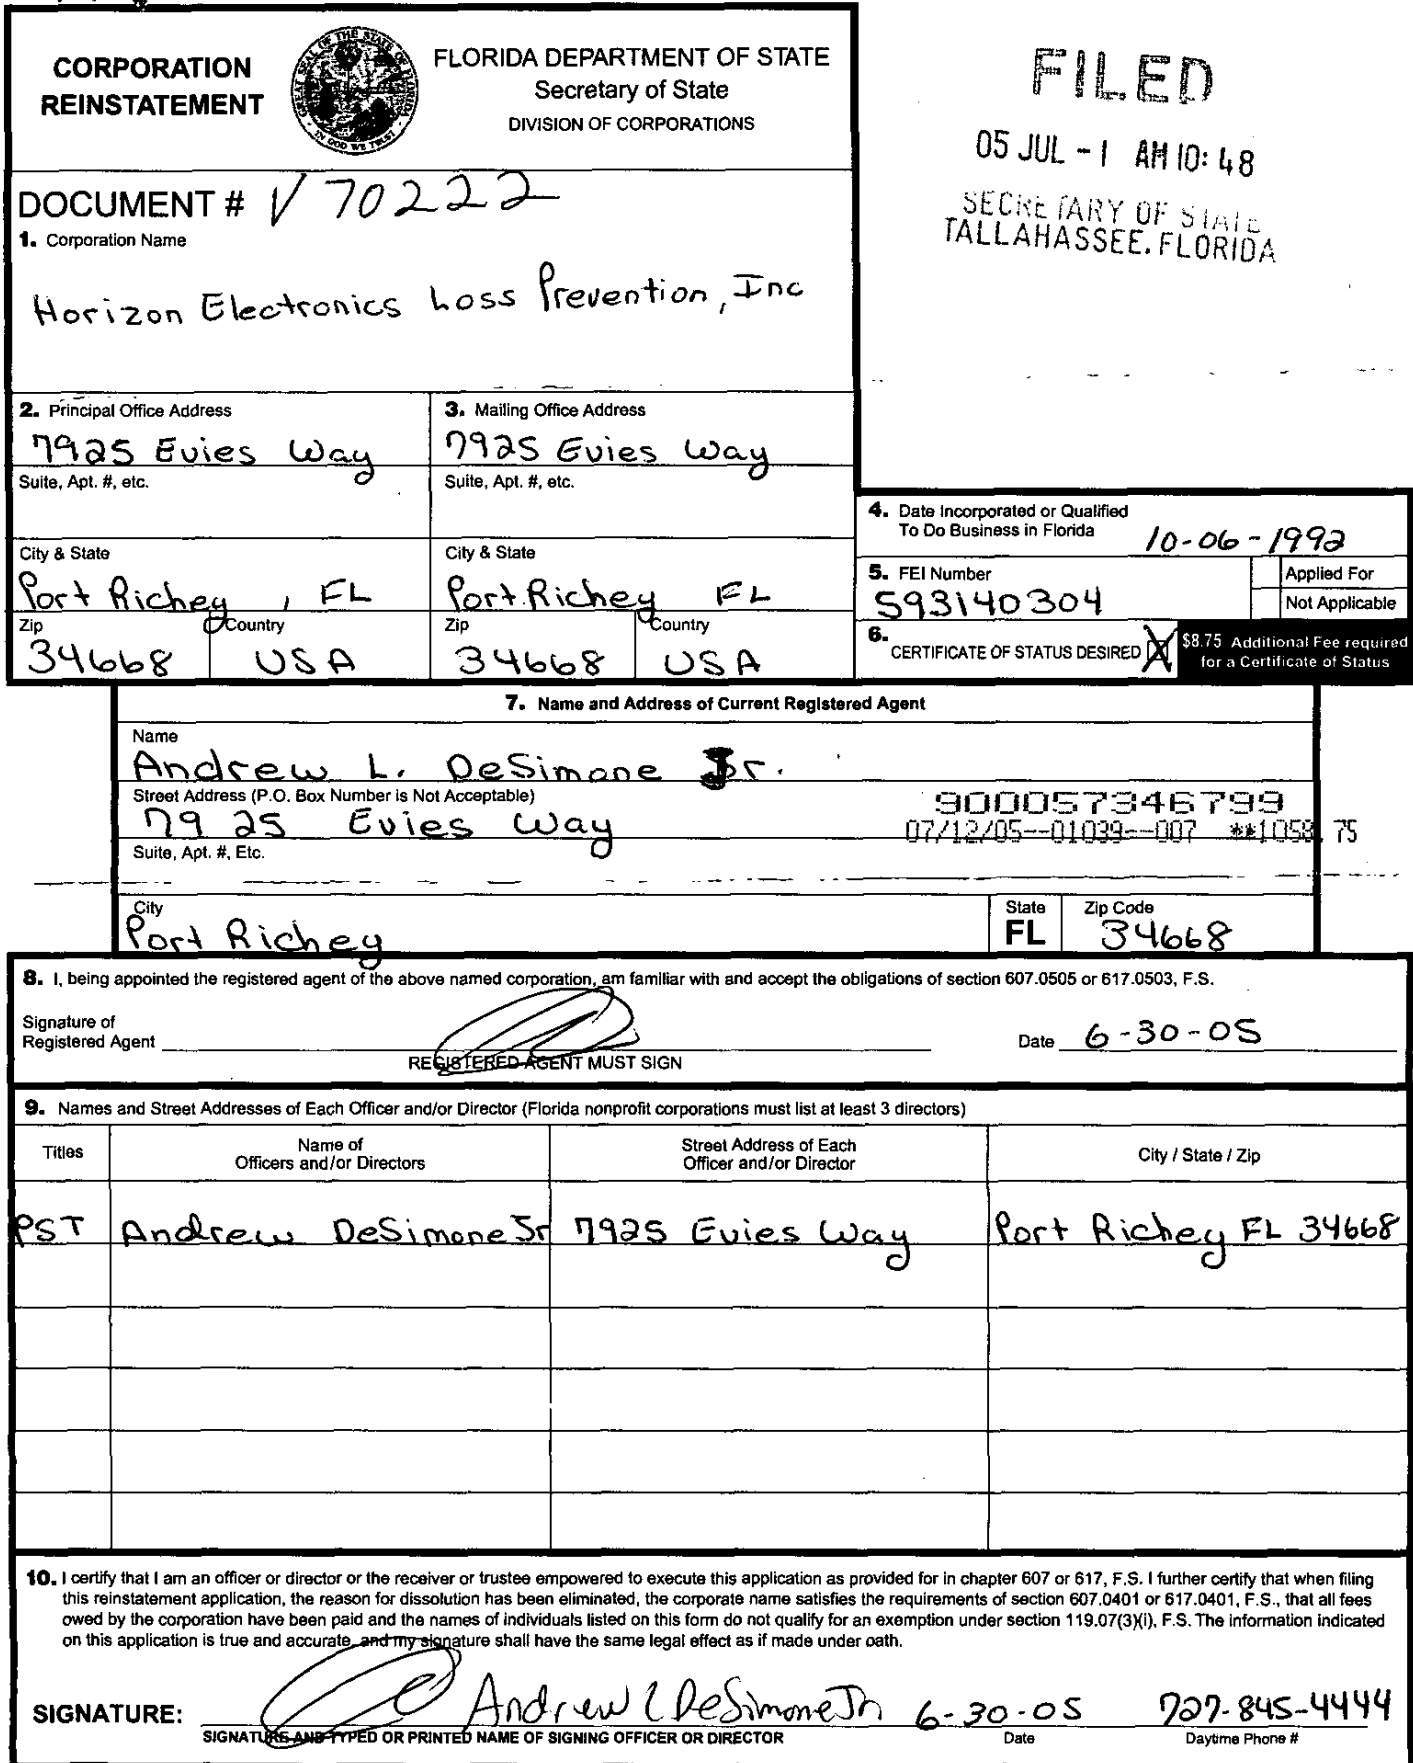 CORPORATION
REINSTATEMENT
FLORIDA DEPARTMENT OF STATE
Secretary of State
DIVISION OF CORPORATIONS
FILED
05 JUL -1 AM 10:48
SECRETARY OF STATE
TALLAHASSEE. FLORIDA
DOCUMENT # V70222
1. Corporation Name
Horizon Electronics Loss Prevention, Inc
2. Principal Office Address
7925 Evies Way
Suite, Apt. #, etc.
City & State
Port Richey, FL
Zip Country
34668 USA
3. Mailing Office Address
7925 Evies Way
Suite, Apt. #, etc.
City & State
Port Richey FL
Zip Country
34668 USA
4. Date Incorporated or Qualified
To Do Business in Florida 10-06-1992
5. FEI Number
593140304
Applied For
Not Applicable
6. CERTIFICATE OF STATUS DESIRED X
$8.75 Additional Fee required
for a Certificate of Status
7. Name and Address of Current Registered Agent
Name
Andrew L. DeSimone Jr.
Street Address (P.O. Box Number is Not Acceptable)
7925 Evies Way
900057346799
07/12/05--01039--007 **1058.75
Suite, Apt. #, Etc.
City State Zip Code
Port Richey FL 34668
8. I, being appointed the registered agent of the above named corporation, am familiar with and accept the obligations of section 607.0505 or 617.0503, F.S.
Signature of
Registered Agent
Date 6-30-05
REGISTERED AGENT MUST SIGN
9. Names and Street Addresses of Each Officer and/or Director (Florida nonprofit corporations must list at least 3 directors)
Titles
Name of
Officers and/or Directors
Street Address of Each
Officer and/or Director
City / State / Zip
PST Andrew DeSimone Jr 7925 Evies Way Port Richey FL 34668
10. I certify that I am an officer or director or the receiver or trustee empowered to execute this application as provided for in chapter 607 or 617, F.S. I further certify that when filing
this reinstatement application, the reason for dissolution has been eliminated, the corporate name satisfies the requirements of section 607.0401 or 617.0401, F.S., that all fees
owed by the corporation have been paid and the names of individuals listed on this form do not qualify for an exemption under section 119.07(3)(i), F.S. The information indicated
on this application is true and accurate, and my signature shall have the same legal effect as if made under oath.
SIGNATURE: Andrew L DeSimone Jr 6-30-05 727-845-4444
SIGNATURE AND TYPED OR PRINTED NAME OF SIGNING OFFICER OR DIRECTOR Date Daytime Phone #